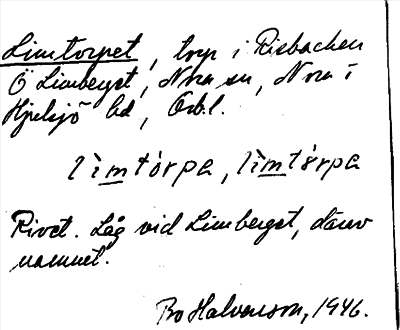 Limtorpet, torp i Risbacken
Ö Limberget, Nora sn, Nora i
Hjulsjö bd, Örbl.
lìmtórpa, lìmtòrpa
Rivet. Låg vid Limberget, därav
namnet.
Bo Halvarson, 1946.